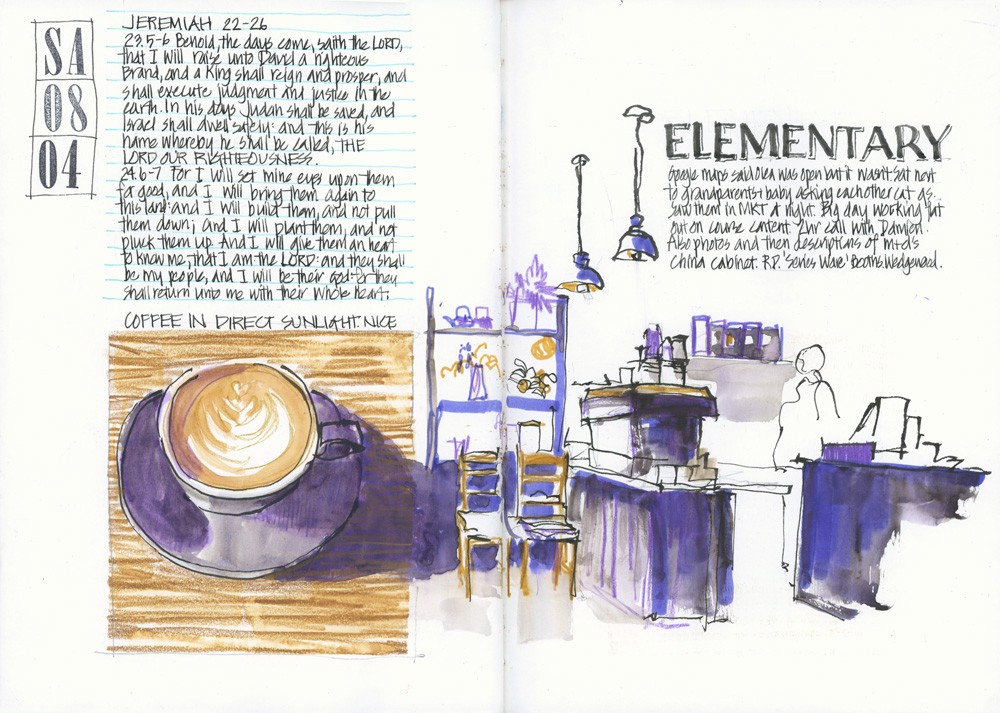 SA
08
04
JEREMIAH 22-26
23.5-6 Behold, the days come, saith the LORD,
that I will raise unto David a righteous
Brand, and a King shall reign and prosper, and
shall execute judgment and justice in the
earth. In his days Judah shall be saved, and
Israel shall dwell safely: and this is his
name whereby he shall be called, THE
LORD OUR RIGHTEOUSNESS.
24.6-7 For I will set mine eyes upon them
for good, and I will bring them again to
this land: and I will build them, and not pull
them down; and I will plant them, and not
pluck them up. And I will give them an heart
to know me, that I am the LORD: and they shall
be my people, and I will be their God: for they
shall return unto me with their whole heart;
COFFEE IN DIRECT SUNLIGHT. NICE
ELEMENTARY
Google maps said Olea was open but it wasn't. Sat next
to grandparents + baby asking each other cat qs.
Saw them in MKT at night. Big day working flat
out on course content. 2hr call with Damien.
Also photos and then descriptions of m+d's
china cabinet. R.D. 'Series Ware' Beans. Wedgewood.